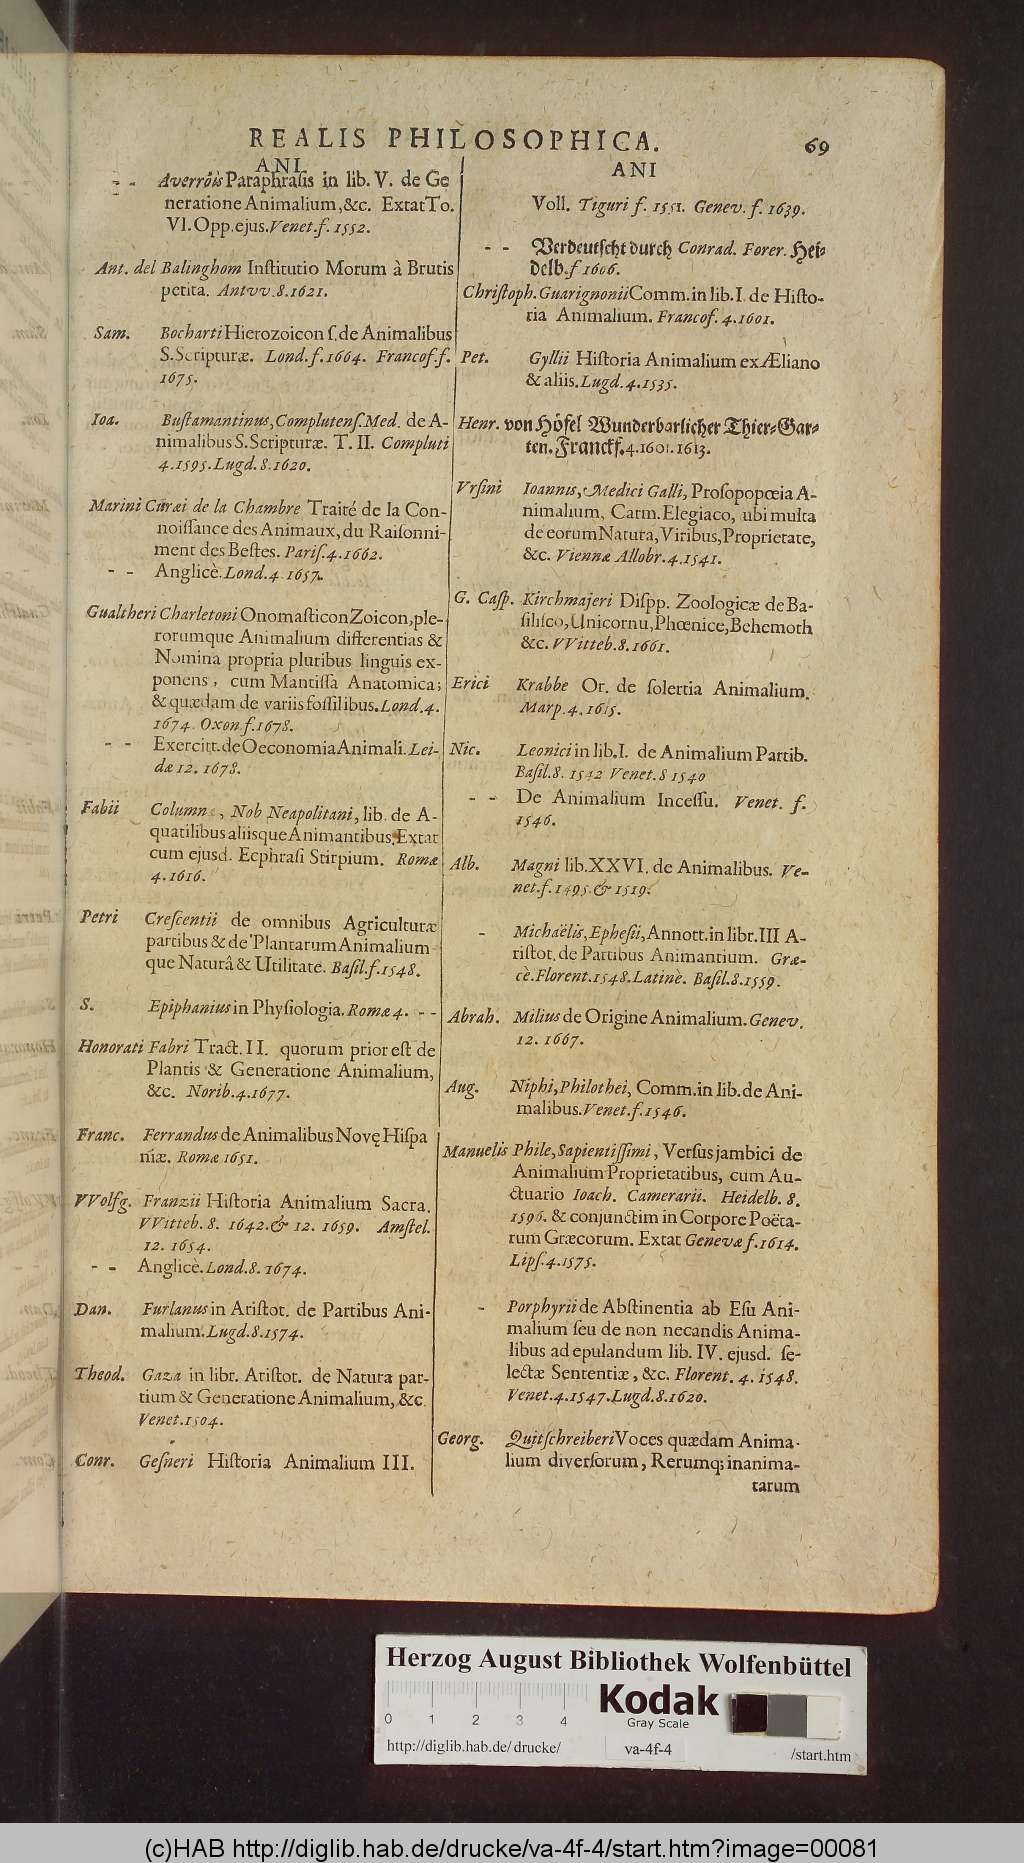 REALIS PHILOSOPHICA. 69
ANI
- - Averröis Paraphrasis in lib. V. de Ge
neratione Animalium, &c. Extat To.
VI. Opp. ejus. Venet. f. 1552.
Ant. del Balinghom Institutio Morum à Brutis
petita. Antvv. 8. 1621.
Sam. Bocharti Hierozoicon s. de Animalibus
S. Scripturæ. Lond. f. 1664. Francof. f.
1675.
Ioa. Bustamantinus, Complutens. Med. de A-
nimalibus S. Scripturæ. T. II. Compluti
4. 1595. Lugd. 8. 1620.
Marini Curæi de la Chambre Traité de la Con-
noissance des Animaux, du Raisonni-
ment des Bestes. Paris. 4. 1662.
- - Anglicè. Lond. 4. 1657.
Gualtheri Charletoni Onomasticon Zoicon, ple-
rorumque Animalium differentias &
Nomina propria pluribus linguis ex-
ponens, cum Mantissa Anatomica;
& quædam de variis fossilibus. Lond. 4.
1674. Oxon. f. 1678.
- - Exercitt. de Oeconomia Animali. Lei-
dæ 12. 1678.
Fabii Column , Nob Neapolitani, lib. de A-
quatilibus aliisque Animantibus. Extat
cum ejusd. Ecphrasi Stirpium. Romæ
4. 1616.
Petri Crescentii de omnibus Agriculturæ
partibus & de Plantarum Animalium-
que Naturâ & Utilitate. Basil. f. 1548.
S. Epiphanius in Physiologia. Romæ 4. - -
Honorati Fabri Tract. II. quorum prior est de
Plantis & Generatione Animalium,
&c. Norib. 4. 1677.
Franc. Ferrandus de Animalibus Novę Hispa
niæ. Romæ 1651.
VVolfg. Franzii Historia Animalium Sacra.
VVitteb. 8. 1642. & 12. 1659. Amstel.
12. 1654.
- - Anglicè. Lond. 8. 1674.
Dan. Furlanus in Aristot. de Partibus Ani-
malium. Lugd. 8. 1574.
Theod. Gaza in libr. Aristot. de Natura par-
tium & Generatione Animalium, &c
Venet. 1504.
Conr. Gesneri Historia Animalium III.
ANI
Voll. Tiguri f. 1551. Genev. f. 1639.
- - Verdeutscht durch Conrad. Forer. Hei-
delb. f 1606.
Christoph. Guarignonii Comm. in lib. I. de Histo-
ria Animalium. Francof. 4. 1601.
Pet. Gyllii Historia Animalium ex Æliano
& aliis. Lugd. 4. 1535.
Henr. von Höfel Wunderbarlicher Thier-Gar-
ten. Franckf. 4. 1601. 1613.
Vrsini Ioannis, Medici Galli, Prosopopœia A-
nimalium, Carm. Elegiaco, ubi multa
de eorum Natura, Viribus, Proprietate,
&c. Viennæ Allobr. 4. 1541.
G. Casp. Kirchmajeri Dispp. Zoologicæ de Ba-
silisco, Unicornu, Phœnice, Behemoth
&c. VVitteb. 8. 1661.
Erici Krabbe Or. de solertia Animalium.
Marp. 4. 1615.
Nic. Leonici in lib. I. de Animalium Partib.
Basil. 8. 1542 Venet. 8 1540
- - De Animalium Incessu. Venet. f.
1546.
Alb. Magni lib. XXVI. de Animalibus. Ve-
net. f. 1495. & 1519.
- Michaëlis, Ephesii, Annott. in libr. III A-
ristot. de Partibus Animantium. Græ-
cè. Florent. 1548. Latinè. Basil. 8. 1559.
Abrah. Milius de Origine Animalium. Genev.
12. 1667.
Aug. Niphi, Philothei, Comm. in lib. de Ani-
malibus. Venet. f. 1546.
Manuelis Phile, Sapientissimi, Versus jambici de
Animalium Proprietatibus, cum Au-
ctuario Ioach. Camerarii. Heidelb. 8.
1596. & conjunctim in Corpore Poëta-
rum Græcorum. Extat Genevæ f. 1614.
Lips. 4. 1575.
- Porphyrii de Abstinentia ab Esu Ani-
malium seu de non necandis Anima-
libus ad epulandum lib. IV. ejusd. se-
lectæ Sententiæ, &c. Florent. 4. 1548.
Venet. 4. 1547. Lugd. 8. 1620.
Georg. Quitschreiberi Voces quædam Anima-
lium diversorum, Rerumq; inanima-
tarum
Herzog August Bibliothek Wolfenbüttel
0 1 2 3 4
Kodak
Gray Scale
http://diglib.hab.de/drucke/ va-4f-4 /start.htm
(c)HAB http://diglib.hab.de/drucke/va-4f-4/start.htm?image=00081